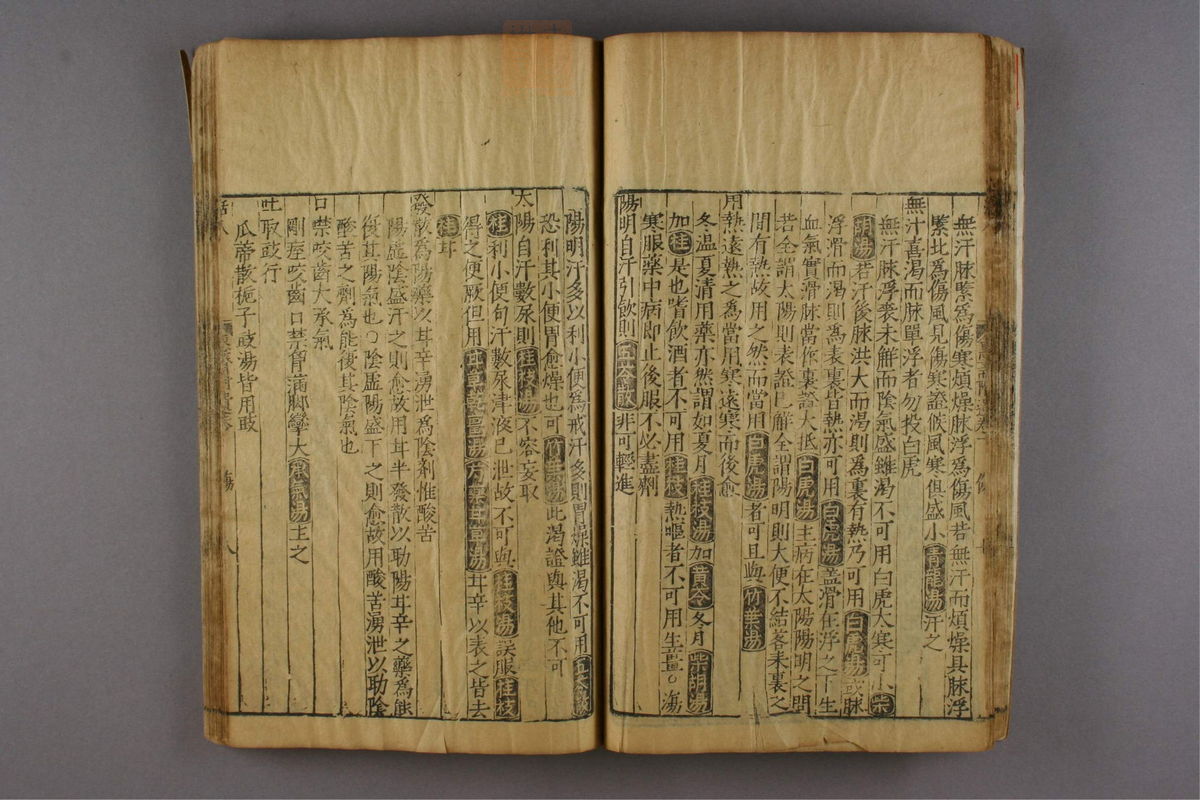 無汗脉緊爲傷寒煩燥脉浮爲傷風若無汗而煩燥具脉浮
緊此爲傷風見傷寒證候風寒俱盛小青龍湯汗之
無汗喜渴而脉單浮者勿投白虎
無汗脉浮表未解而陰氣盛雖渴不可用白虎大寒可小柴
胡湯若汗後脉洪大而渴則爲裏有熱乃可用白虎湯或脉
浮滑而渴則爲表裏皆熱亦可用白虎湯蓋滑在浮之下生
血氣實滑脉當作裏證大抵白虎湯主病在太陽陽明之間
若全謂太陽則表證已解全謂陽明則大便不結畧未裏之
間有熱故用之然而當用白虎湯者可且與竹葉湯
用熱遠熱之爲當用寒遠寒而後愈
冬温夏清用藥亦然謂如夏月桂枝湯加黄今冬月柴胡湯
加桂是也嗜飲酒者不可用桂枝熱嘔者不可用生薑○湯
寒服藥中病即止後服不必盡劑
陽明自汗引飲則五苓散非可輕進
陽明汗多以利小便爲戒汗多則胃燥雖渴不可用五苓散
恐利其小便胃愈燥也可竹葉湯此渴證與其他不可
太陽自汗數尿則桂枝湯不容妄取
桂利小便句汗數尿津液已泄故不可與桂枝湯誤服桂枝
得之便厥但用甘草乾薑湯芍藥甘草湯甘辛以表之皆去
桂耳
發散爲陽藥以甘辛湧泄爲陰剂惟酸苦
陽虛陰盛汗之則愈故用甘半發散以助陽甘辛之藥爲能
復其陽氣也○陰虛陽盛下之則愈故用酸苦湧泄以助陰
酸苦之劑爲能復其陰氣也
口禁咬齒大承氣
剛痓咬齒口禁胷滿脚攣大承氣湯主之
吐取豉行
瓜蒂散梔子豉湯皆用豉